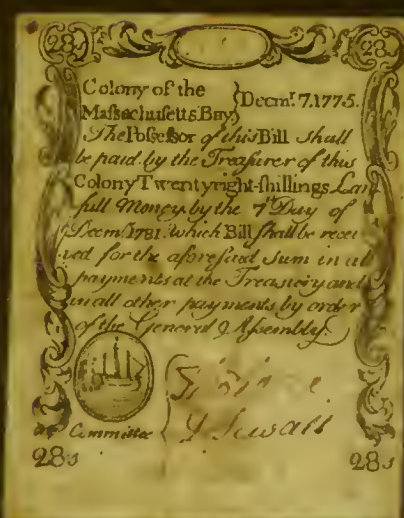 28s 28s
Colony of the
Massachusetts Bay } Decmr. 7.1775.
The Possessor of this Bill shall
be paid by the Treasurer of this
Colony Twenty eight-shillings Law
full Money, by the 7th Day of
Decmr. 1781. which Bill shall be recei
ved for the aforesaid sum in all
payments at the Treasury and
in all other payments by order
of the General Assembly.
Committee
J Sewall
28s 28s